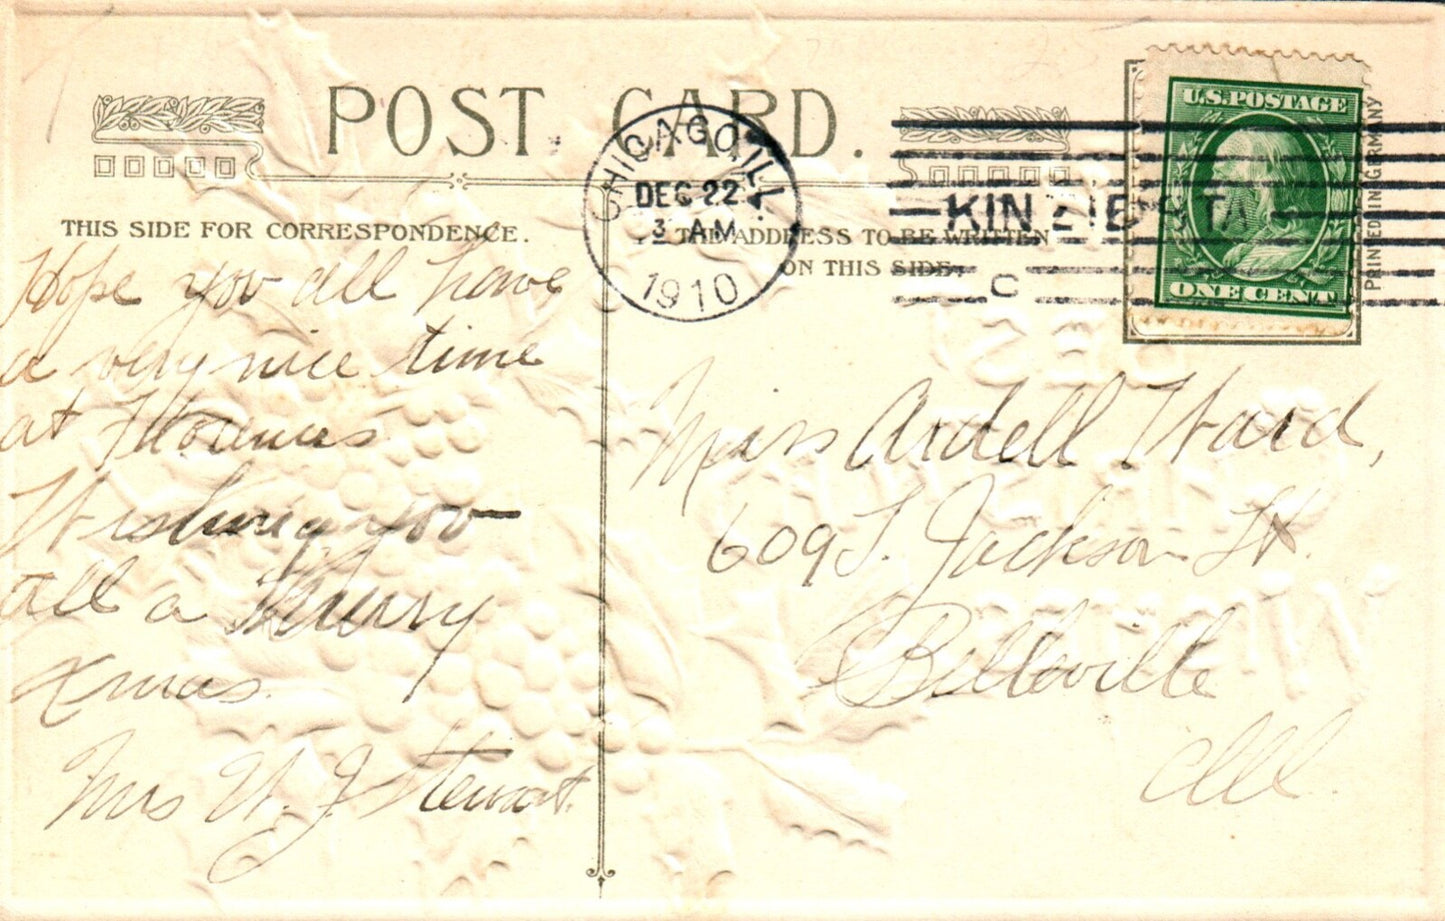 POST CARD.
THIS SIDE FOR CORRESPONDENCE.
THE ADDRESS TO BE WRITTEN
ON THIS SIDE.
CHICAGO, ILL.
DEC 22
3 AM
1910
KIN ZIE STA
C
U.S. POSTAGE
ONE CENT
PRINTED IN GERMANY
Hope you all have
a very nice time
at Florences
Wishing you
all a Merry
Xmas.
Mrs W. J. Stewart.
Miss Ardell Ward,
609 S. Jackson St.
Belleville
Ill.